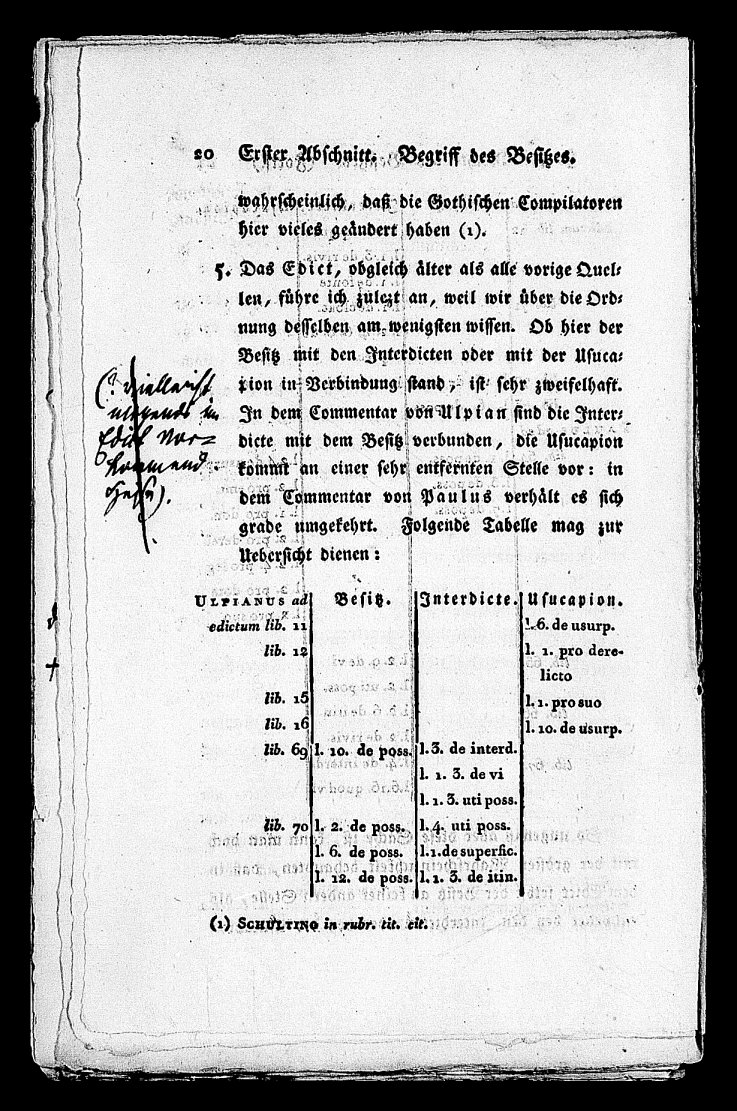 20 Erster Abschnitt. Begriff des Besitzes.
wahrscheinlich, daß die Gothischen Compilatoren
hier vieles geändert haben (1).
5. Das Edict, obgleich älter als alle vorige Quel-
len, führe ich zulezt an, weil wir über die Ord-
nung desselben am wenigsten wissen. Ob hier der
Besitz mit den Interdicten oder mit der Usuca-
pion in Verbindung stand, ist sehr zweifelhaft.
In dem Commentar von Ulpian sind die Inter-
dicte mit dem Besitz verbunden, die Usucapion
kommt an einer sehr entfernten Stelle vor: in
dem Commentar von Paulus verhält es sich
grade umgekehrt. Folgende Tabelle mag zur
Uebersicht dienen:
(? vielleicht
nirgends im
Edict vor-
kommend.
ULPIANUS ad Besitz. Interdicte. Usucapion.
edictum lib. 11 l. 6. de usurp.
lib. 12 l. 1. pro dere-
licto
lib. 15 l. 1. pro suo
lib. 16 l. 10. de usurp.
lib. 69 l. 10. de poss. l. 3. de interd.
l. 1. 3. de vi
l. 1. 3. uti poss.
lib. 70 l. 2. de poss. l. 4. uti poss.
l. 6. de poss. l. 1. de superfic.
l. 12. de poss. l. 1. 3. de itin.
(1) SCHULTING in rubr. tit. cit.